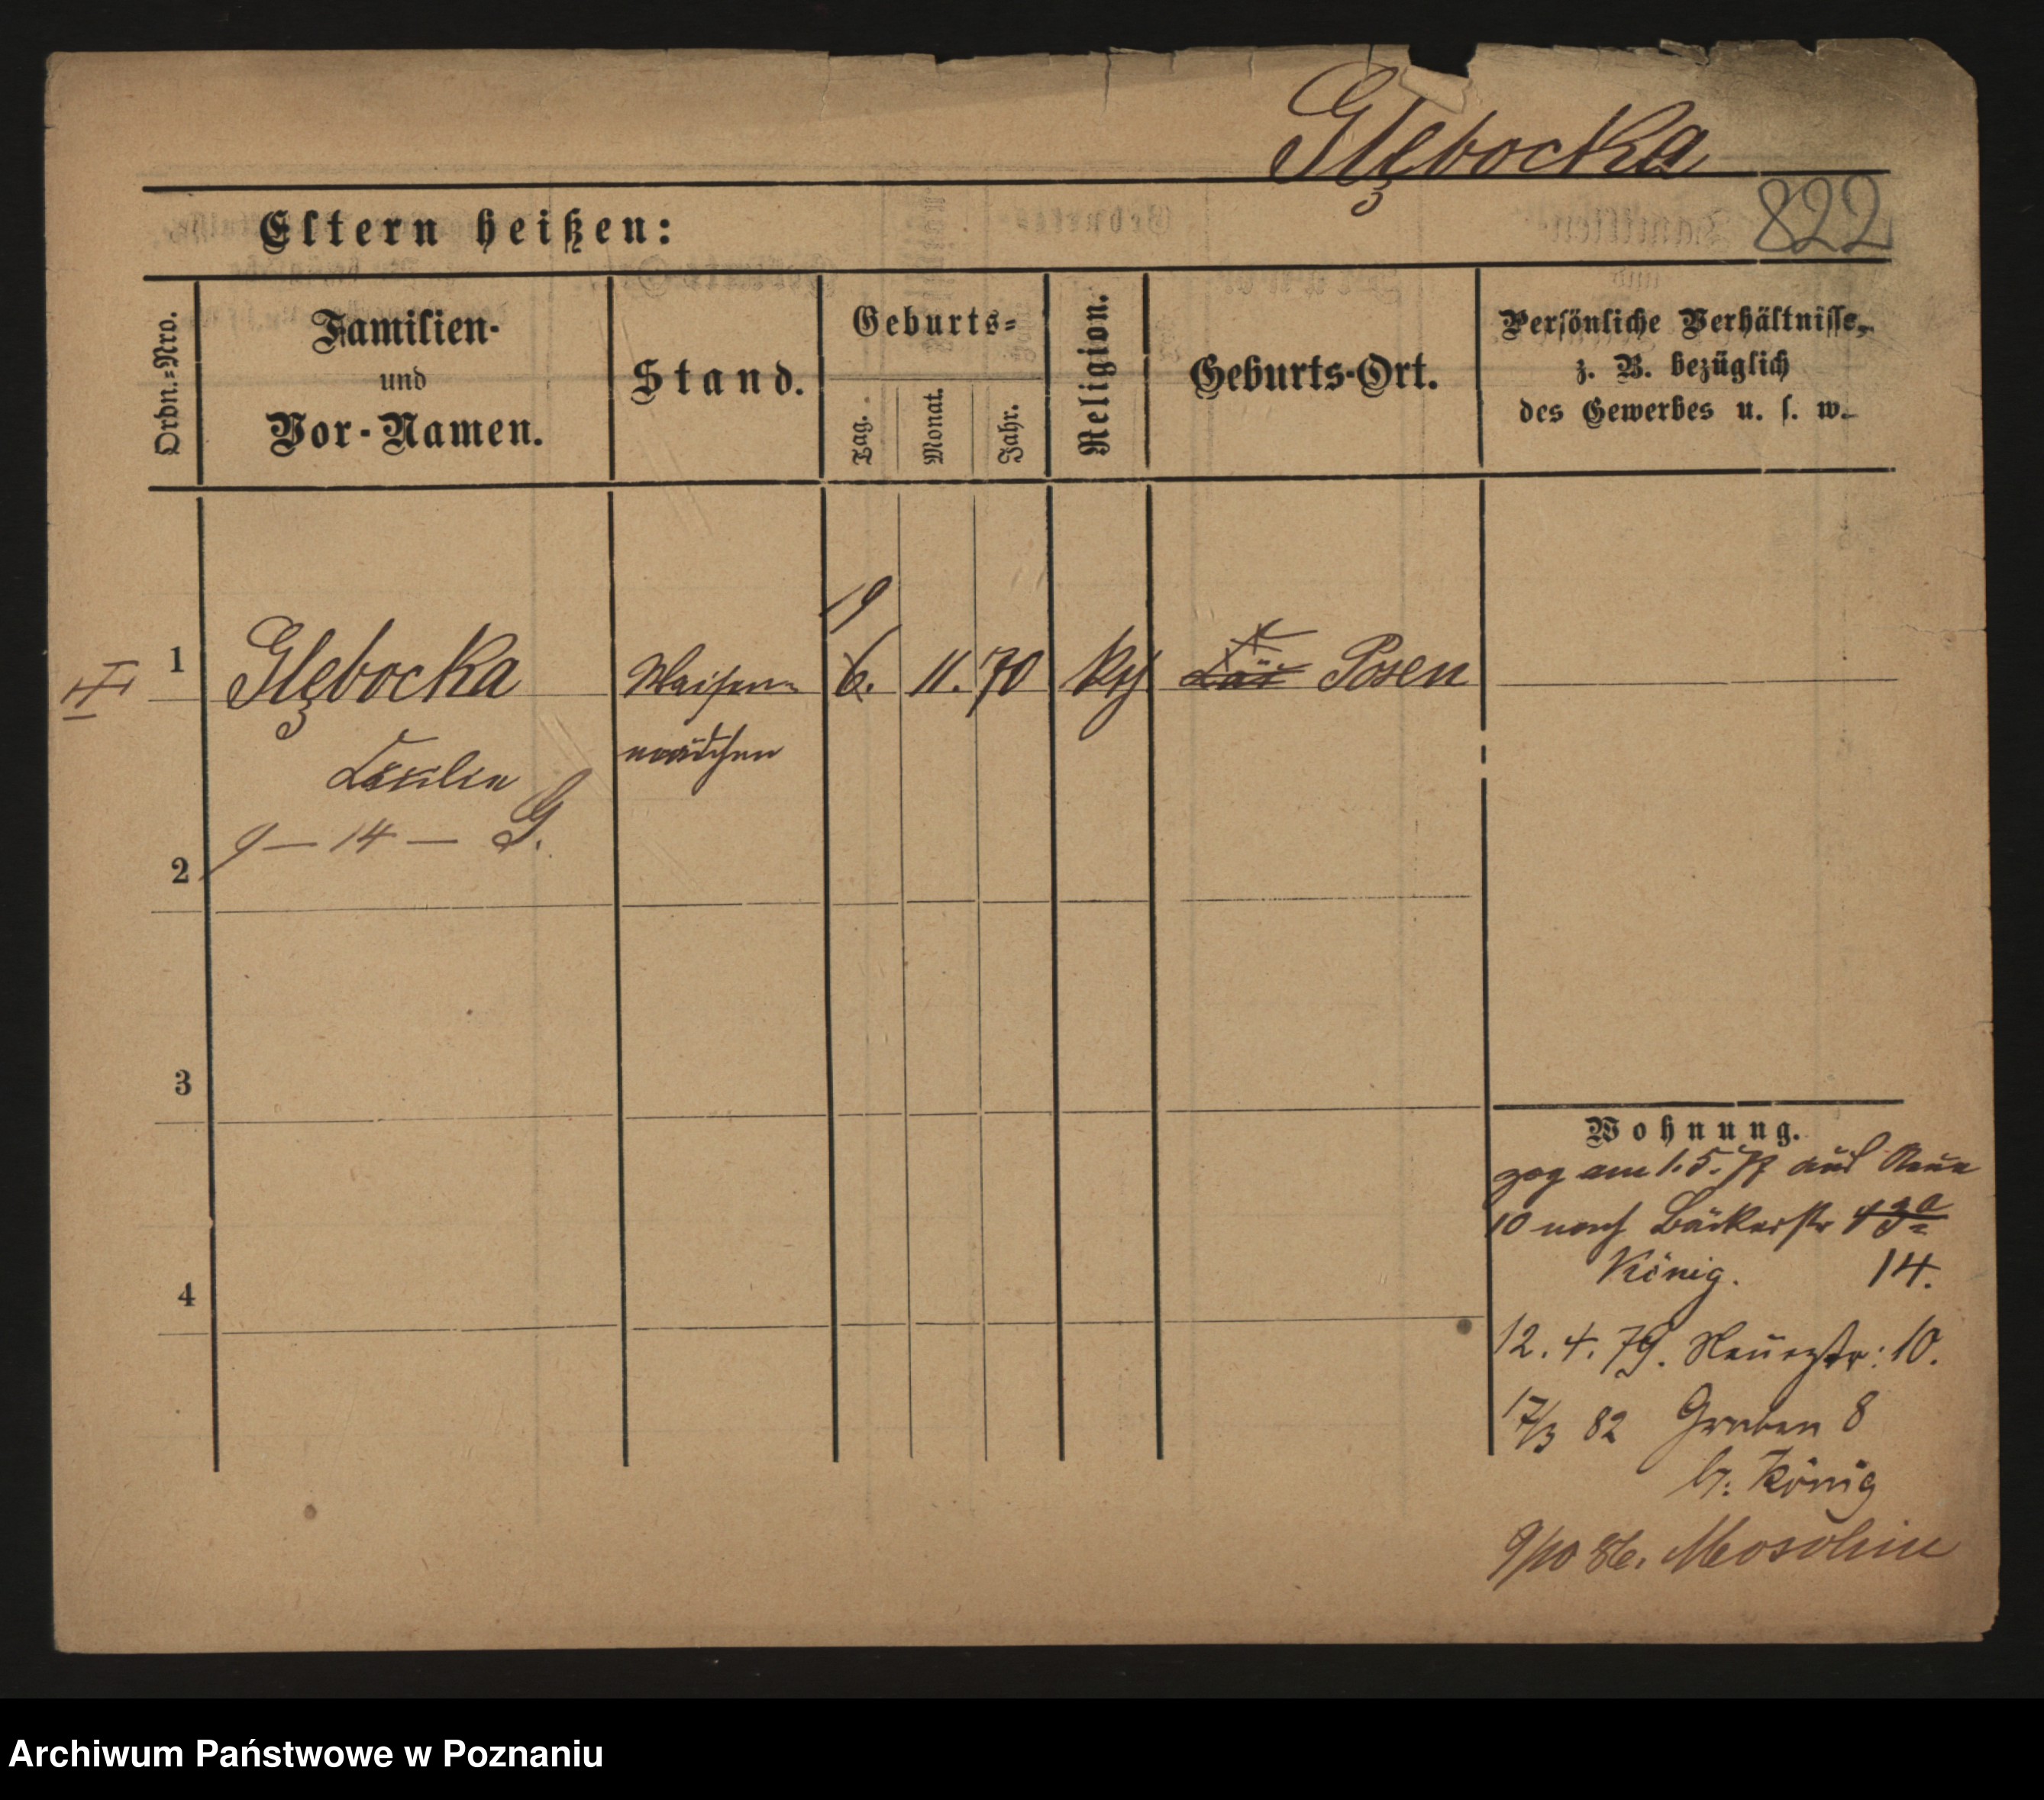 Głębocka
822
Eltern heißen:
Ordn.=Nro.
Familien-
und
Vor-Namen.
Stand.
Geburts=
Tag.
Monat.
Jahr.
Religion.
Geburts-Ort.
Persönliche Verhältnisse,
z. B. bezüglich
des Gewerbes u. s. w.
19
1 Głębocka Waisen= 6. 11. 70 kth Posen
mädchen
9 — 14 — G.
2
3
4
Wohnung.
zog am 1. 5. 77 aus Neue
10 nach Bäckerstr 13a
König. 14.
12. 4. 79. Neuestr: 10.
17/3 82 Graben 8
b. König
9/10 86. Moschin
Archiwum Państwowe w Poznaniu